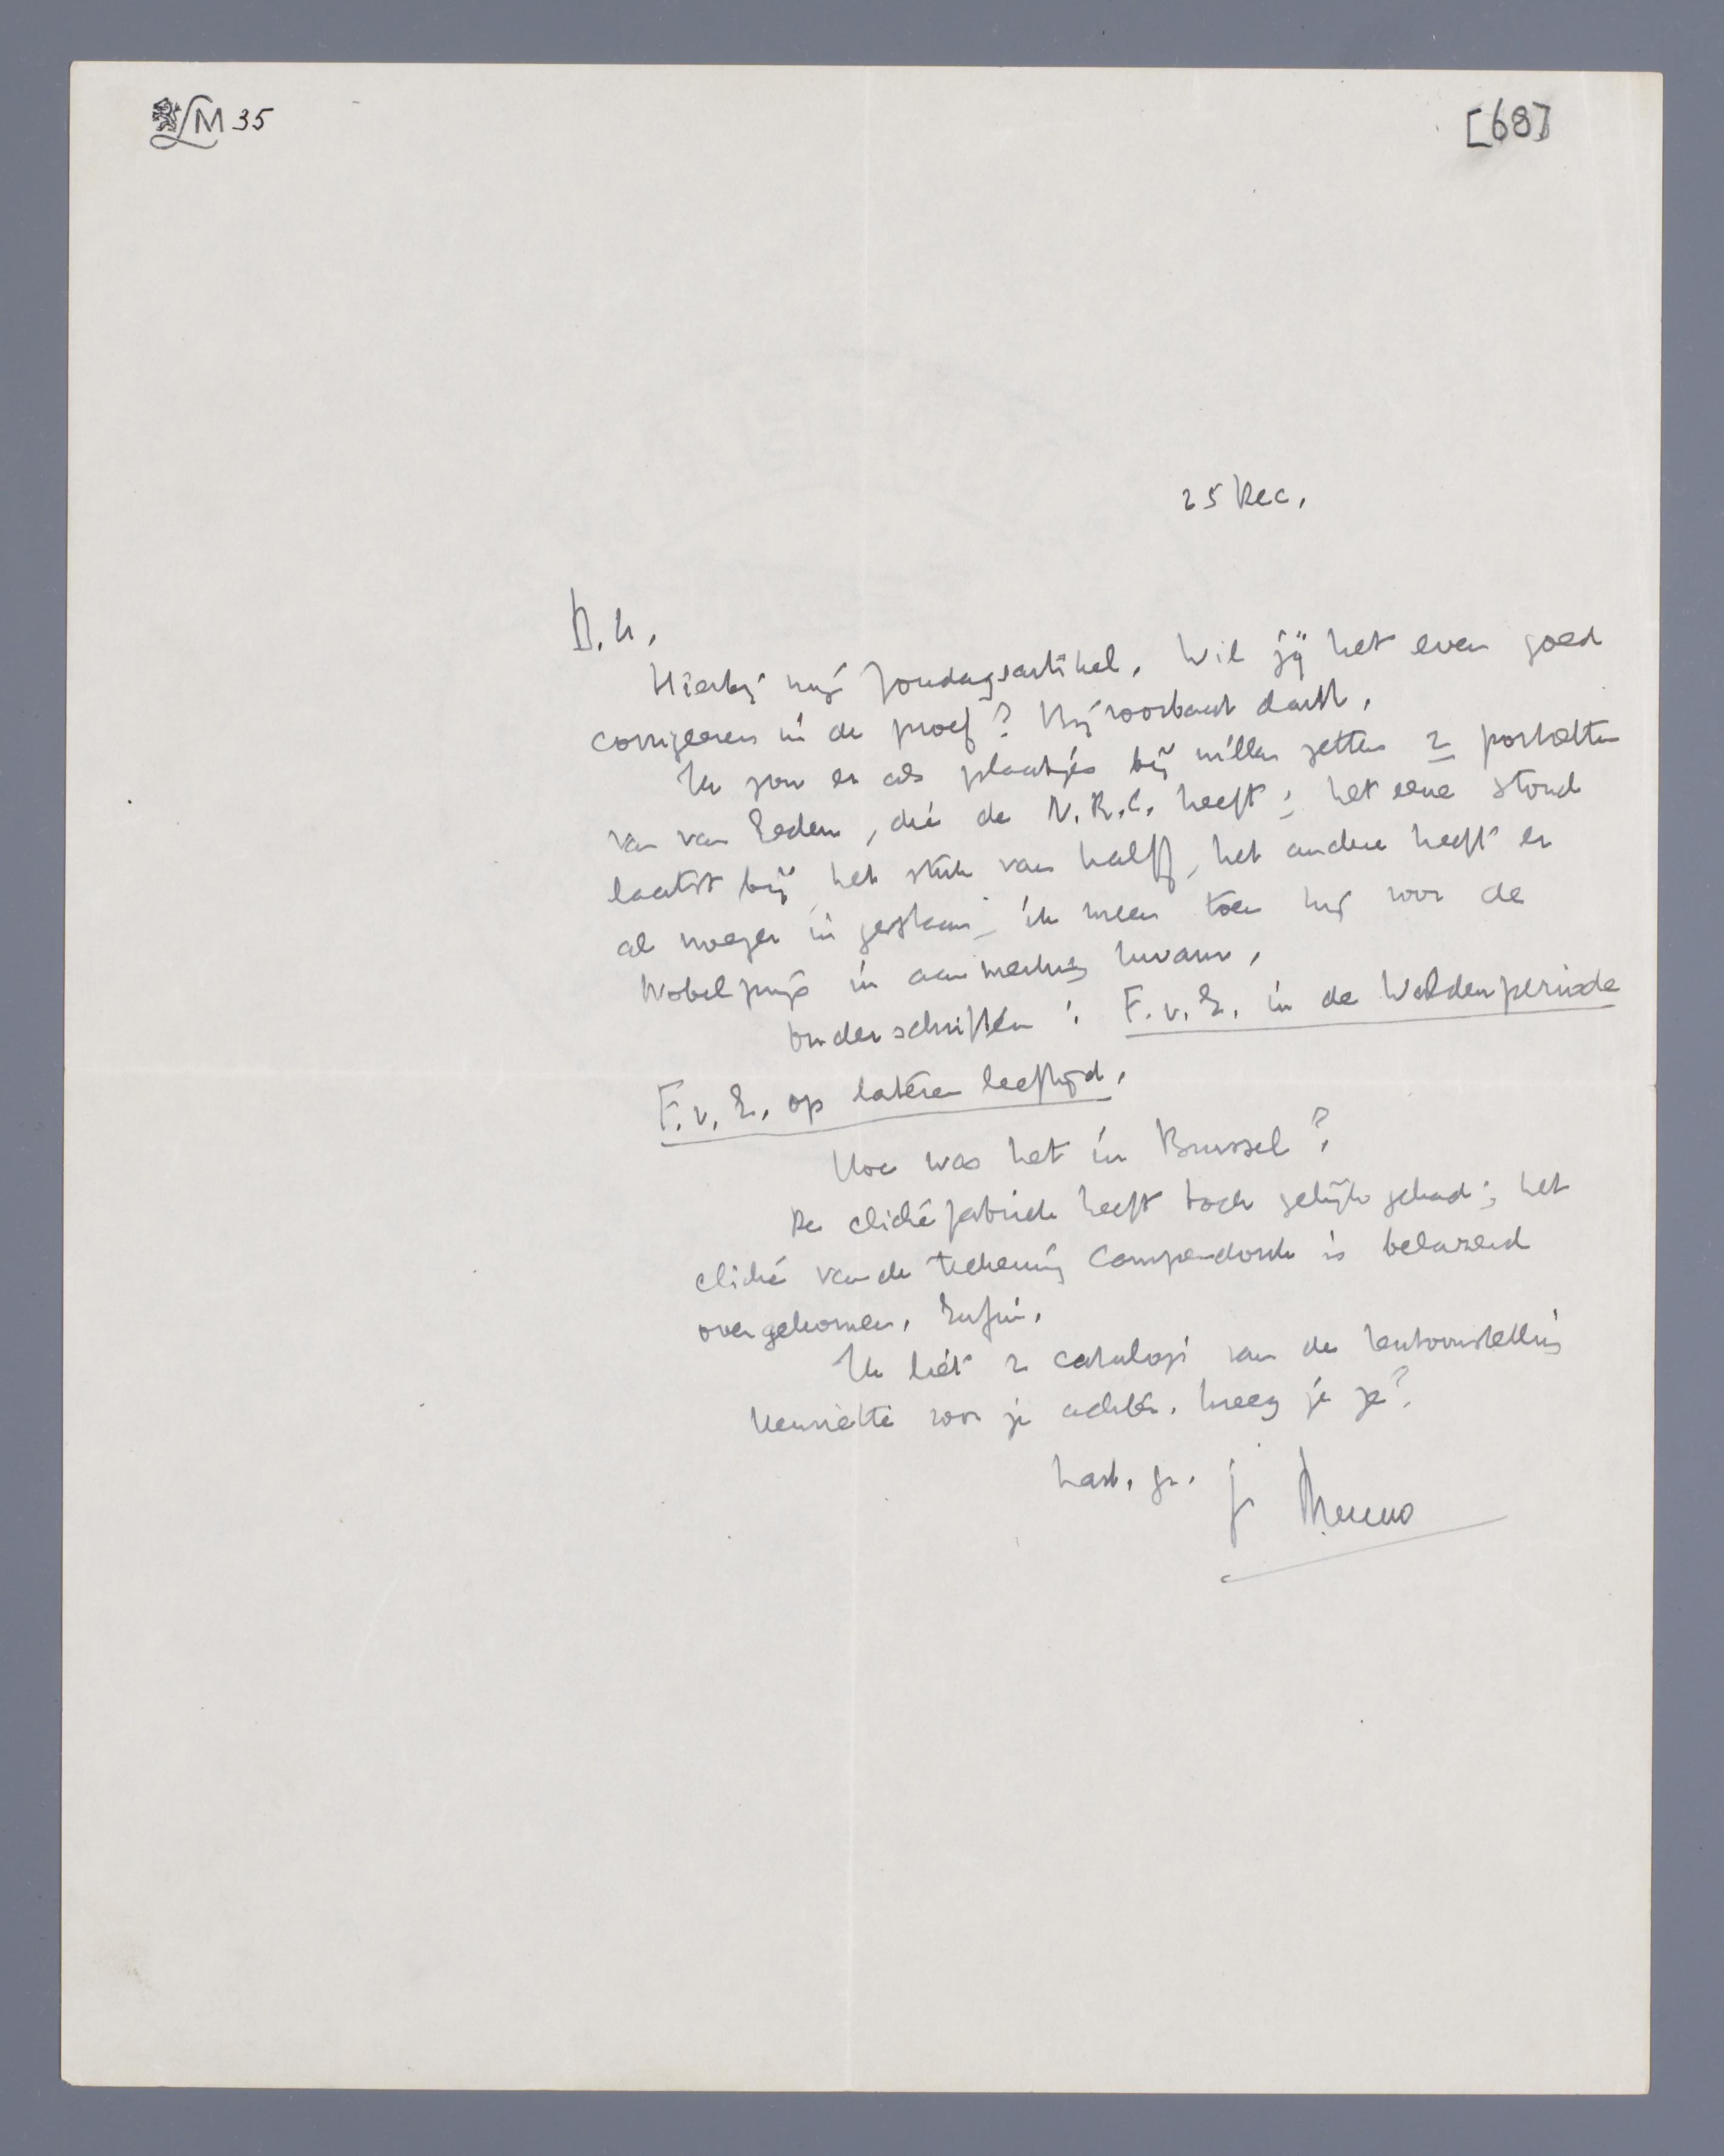 LM 35
[68]
25 Dec.
D. H.
Hierbij mijn Zondagsartikel. Wil jij het even goed
corrigeeren in de proef? Bij voorbaat dank.
Ik zou er als plaatjes bij willen zetten 2 portretten
van van Eeden, die de N.R.C. heeft; het eene stond
laatst bij het stuk van Kalff, het andere heeft er
al vroeger in gestaan, ik meen toen hij voor de
Nobelprijs in aanmerking kwam.
Onderschriften: F.v.E. in de Waldenperiode
F.v.E. op lateren leeftijd.
Hoe was het in Brussel?
De clichéfabriek heeft toch gelijk gehad; het
cliché van de teekening Campendonk is belazerd
overgekomen. Enfin.
Ik liet 2 catalogi van de tentoonstelling
Henriëtte voor je achter. Kreeg je ze?
Hart. gr. je Menno